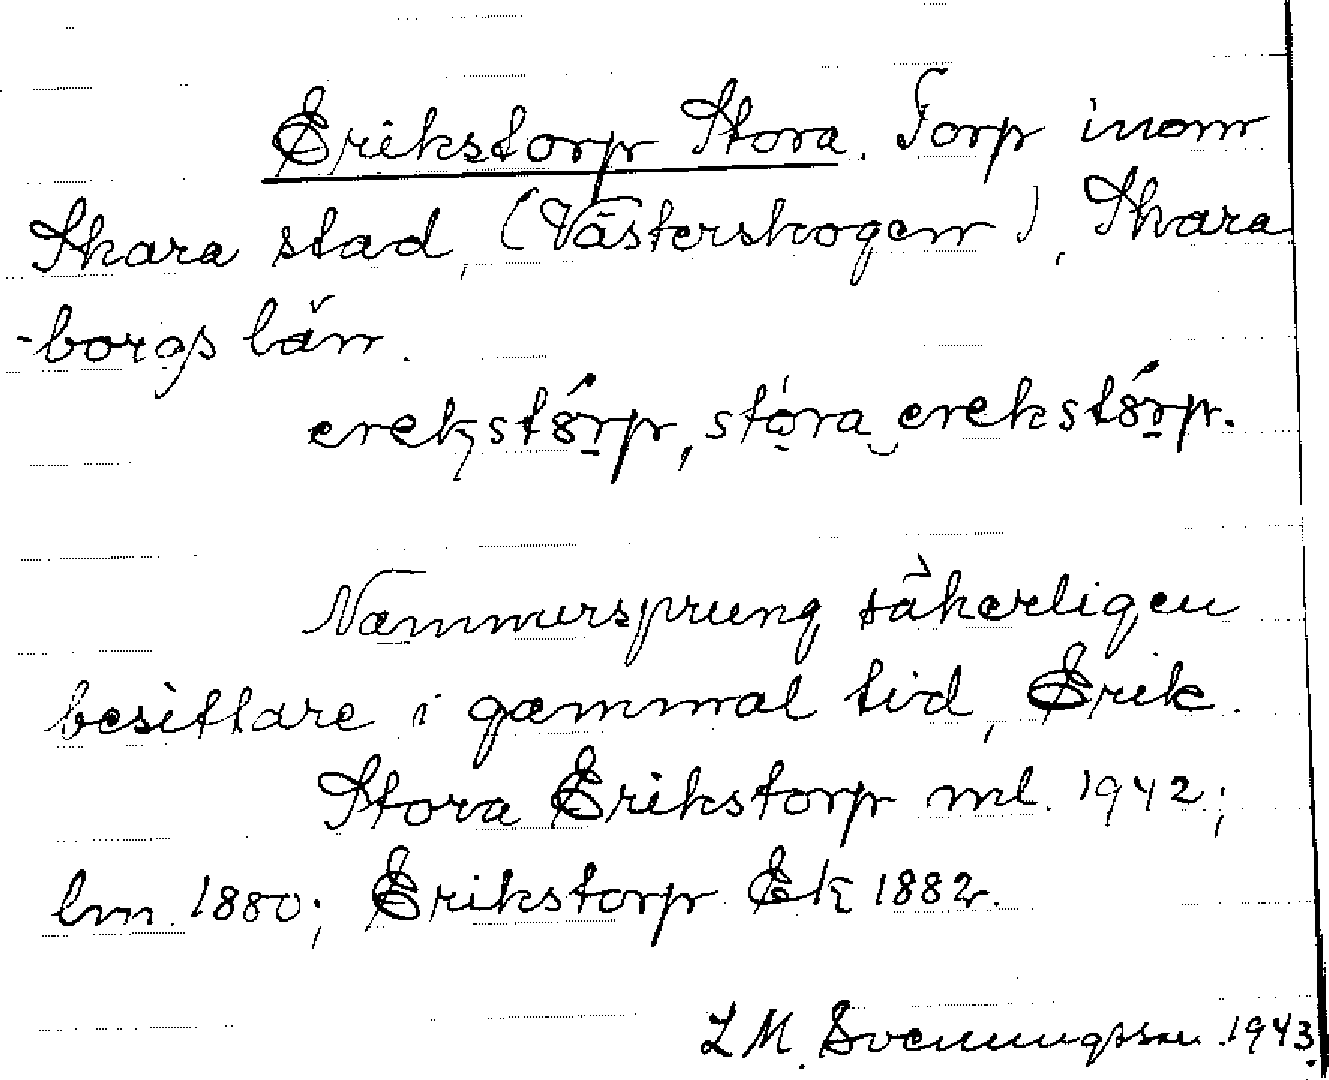 Erikstorp Stora. Torp inom
Skara stad, (Västerskogen), Skara
-borgs län.
erekstórp, stóra erekstórp.
Namnursprung säkerligen
besittare i gammal tid, Erik.
Stora Erikstorp ml. 1942;
lm. 1880; Erikstorp Ek 1882.
L M. Svenungsson 1943.